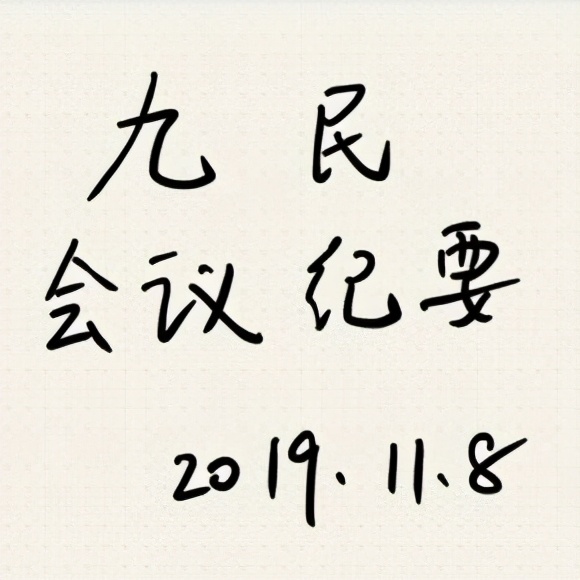 九 民
会议纪要
2019.11.8